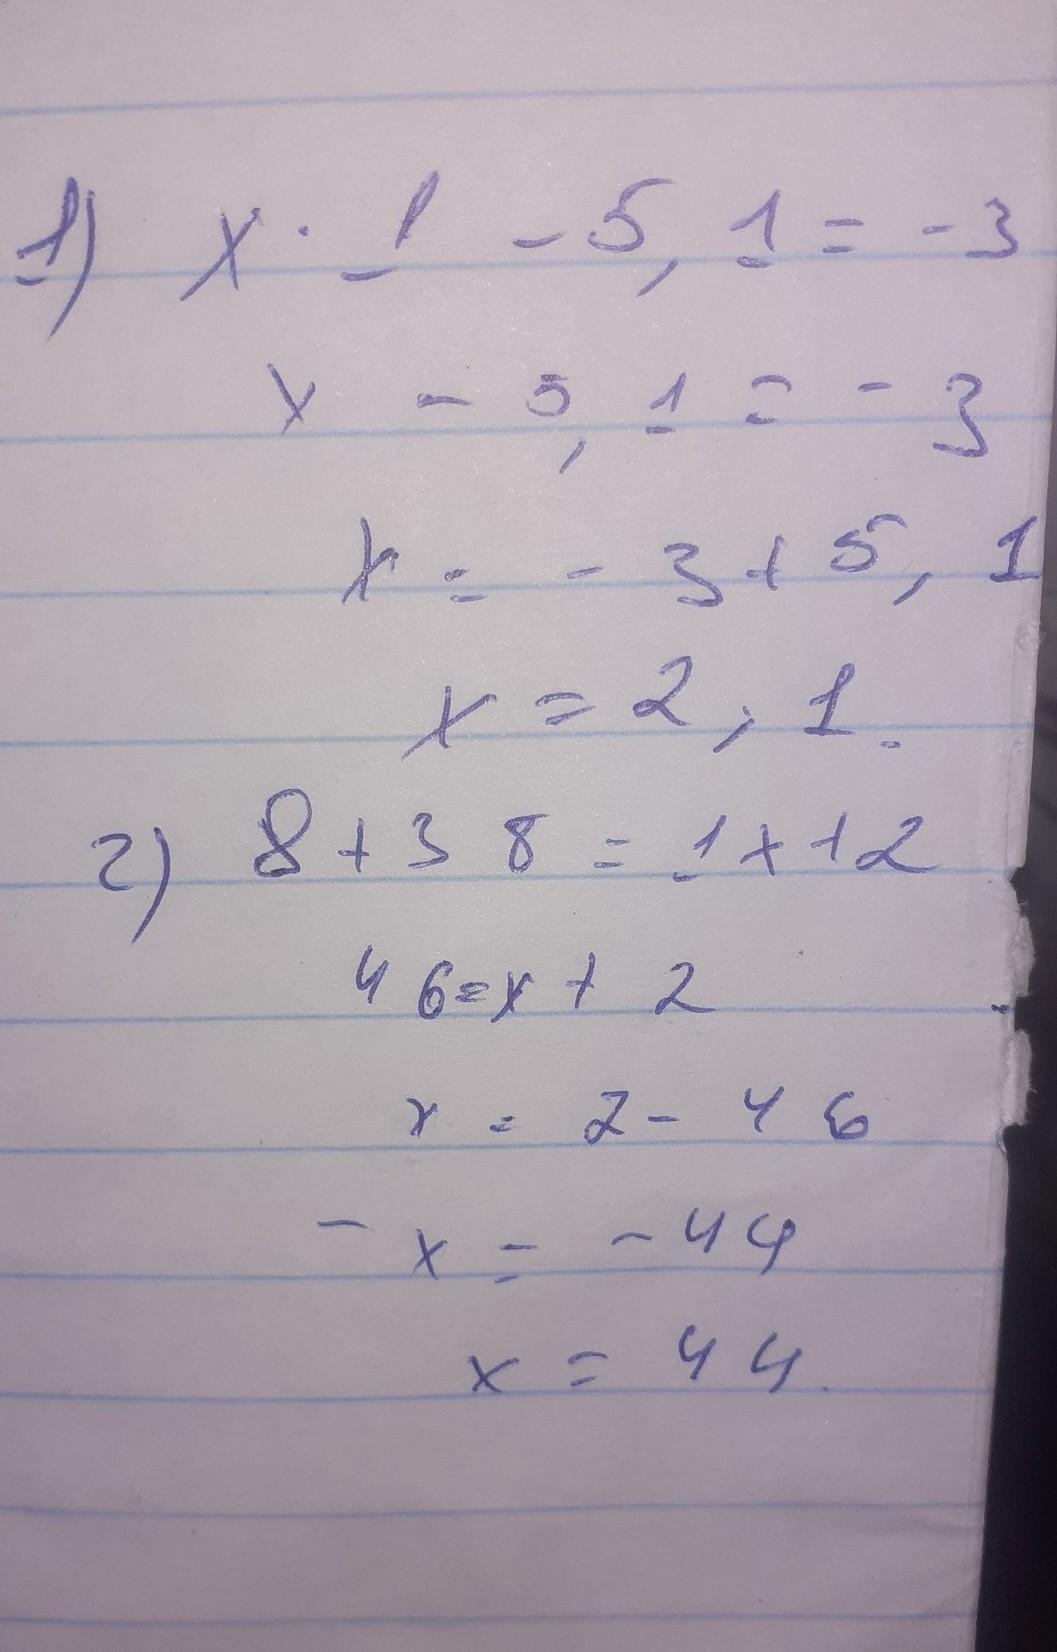 1) x · 1 - 5, 1 = -3
x - 5, 1 = - 3
x = - 3 + 5, 1
x = 2, 1.
2) 8 + 38 = 1x + 2
46 = x + 2
x = 2 - 46
- x = - 44
x = 44.